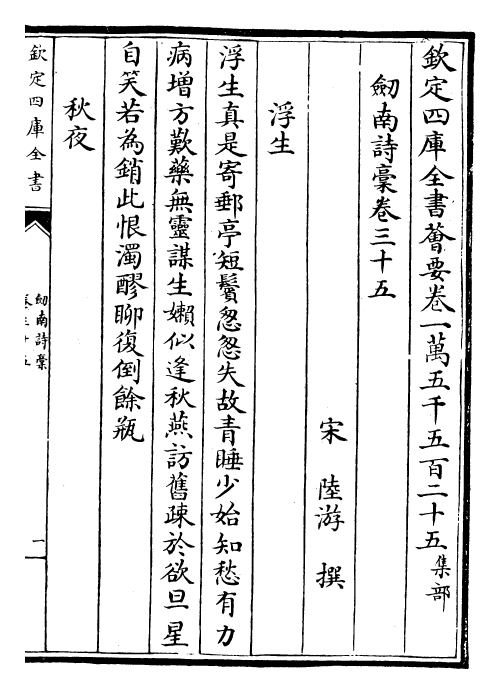 欽定四庫全書薈要卷一萬五千五百二十五集部
劒南詩稾卷三十五
宋陸游撰
浮生
浮生真是寄郵亭短鬢怱怱失故青睡少始知愁有力
病增方歎藥無靈謀生嬾似逢秋燕訪舊疎於欲旦星
自笑若為銷此恨濁醪聊復倒餘瓶
秋夜
欽定四庫全書
劒南詩稾
卷三十五
一